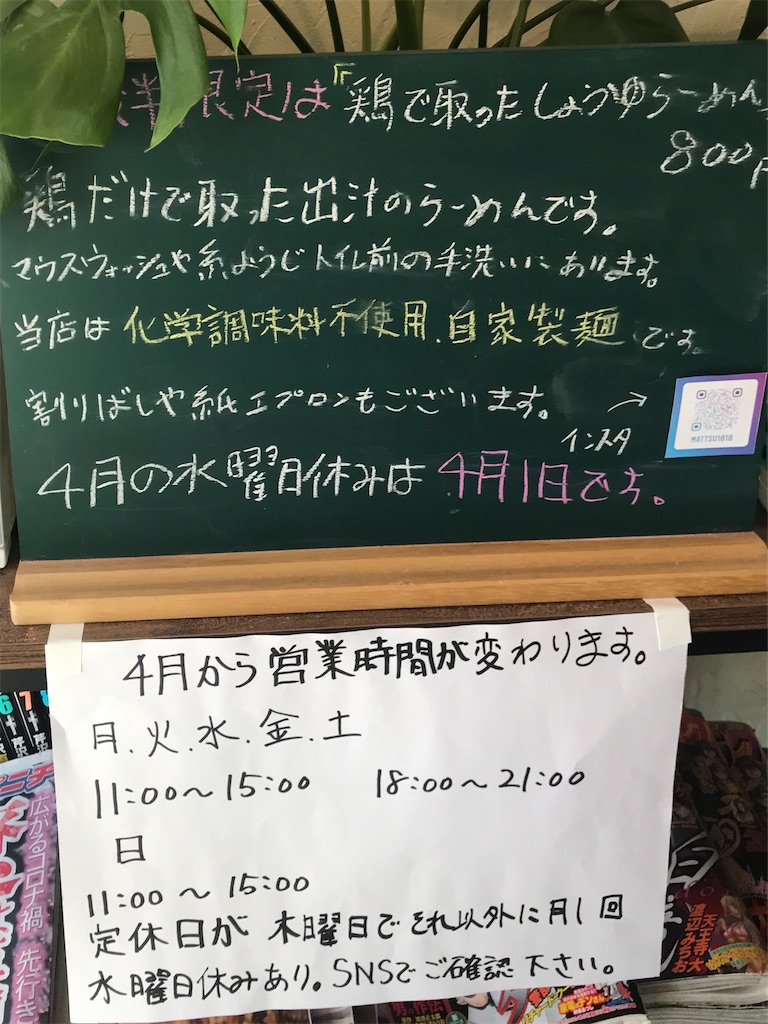 限定は「鶏で取ったしょうゆらーめん
800円
鶏だけで取った出汁のらーめんです。
マウスウォッシュや糸ようじトイレ前の手洗いにあります。
当店は化学調味料不使用、自家製麺です。
割りばしや紙エプロンもございます。
インスタ
MATTSU1818
4月の水曜日休みは4月1日です。
4月から営業時間が変わります。
月.火.水.金.土
11:00～15:00 18:00～21:00
日
11:00～15:00
定休日が木曜日でそれ以外に月1回
水曜日休みあり。SNSでご確認下さい。
6 7 8
広がるコロナ禍 先行き
天王寺大
渡辺みちお